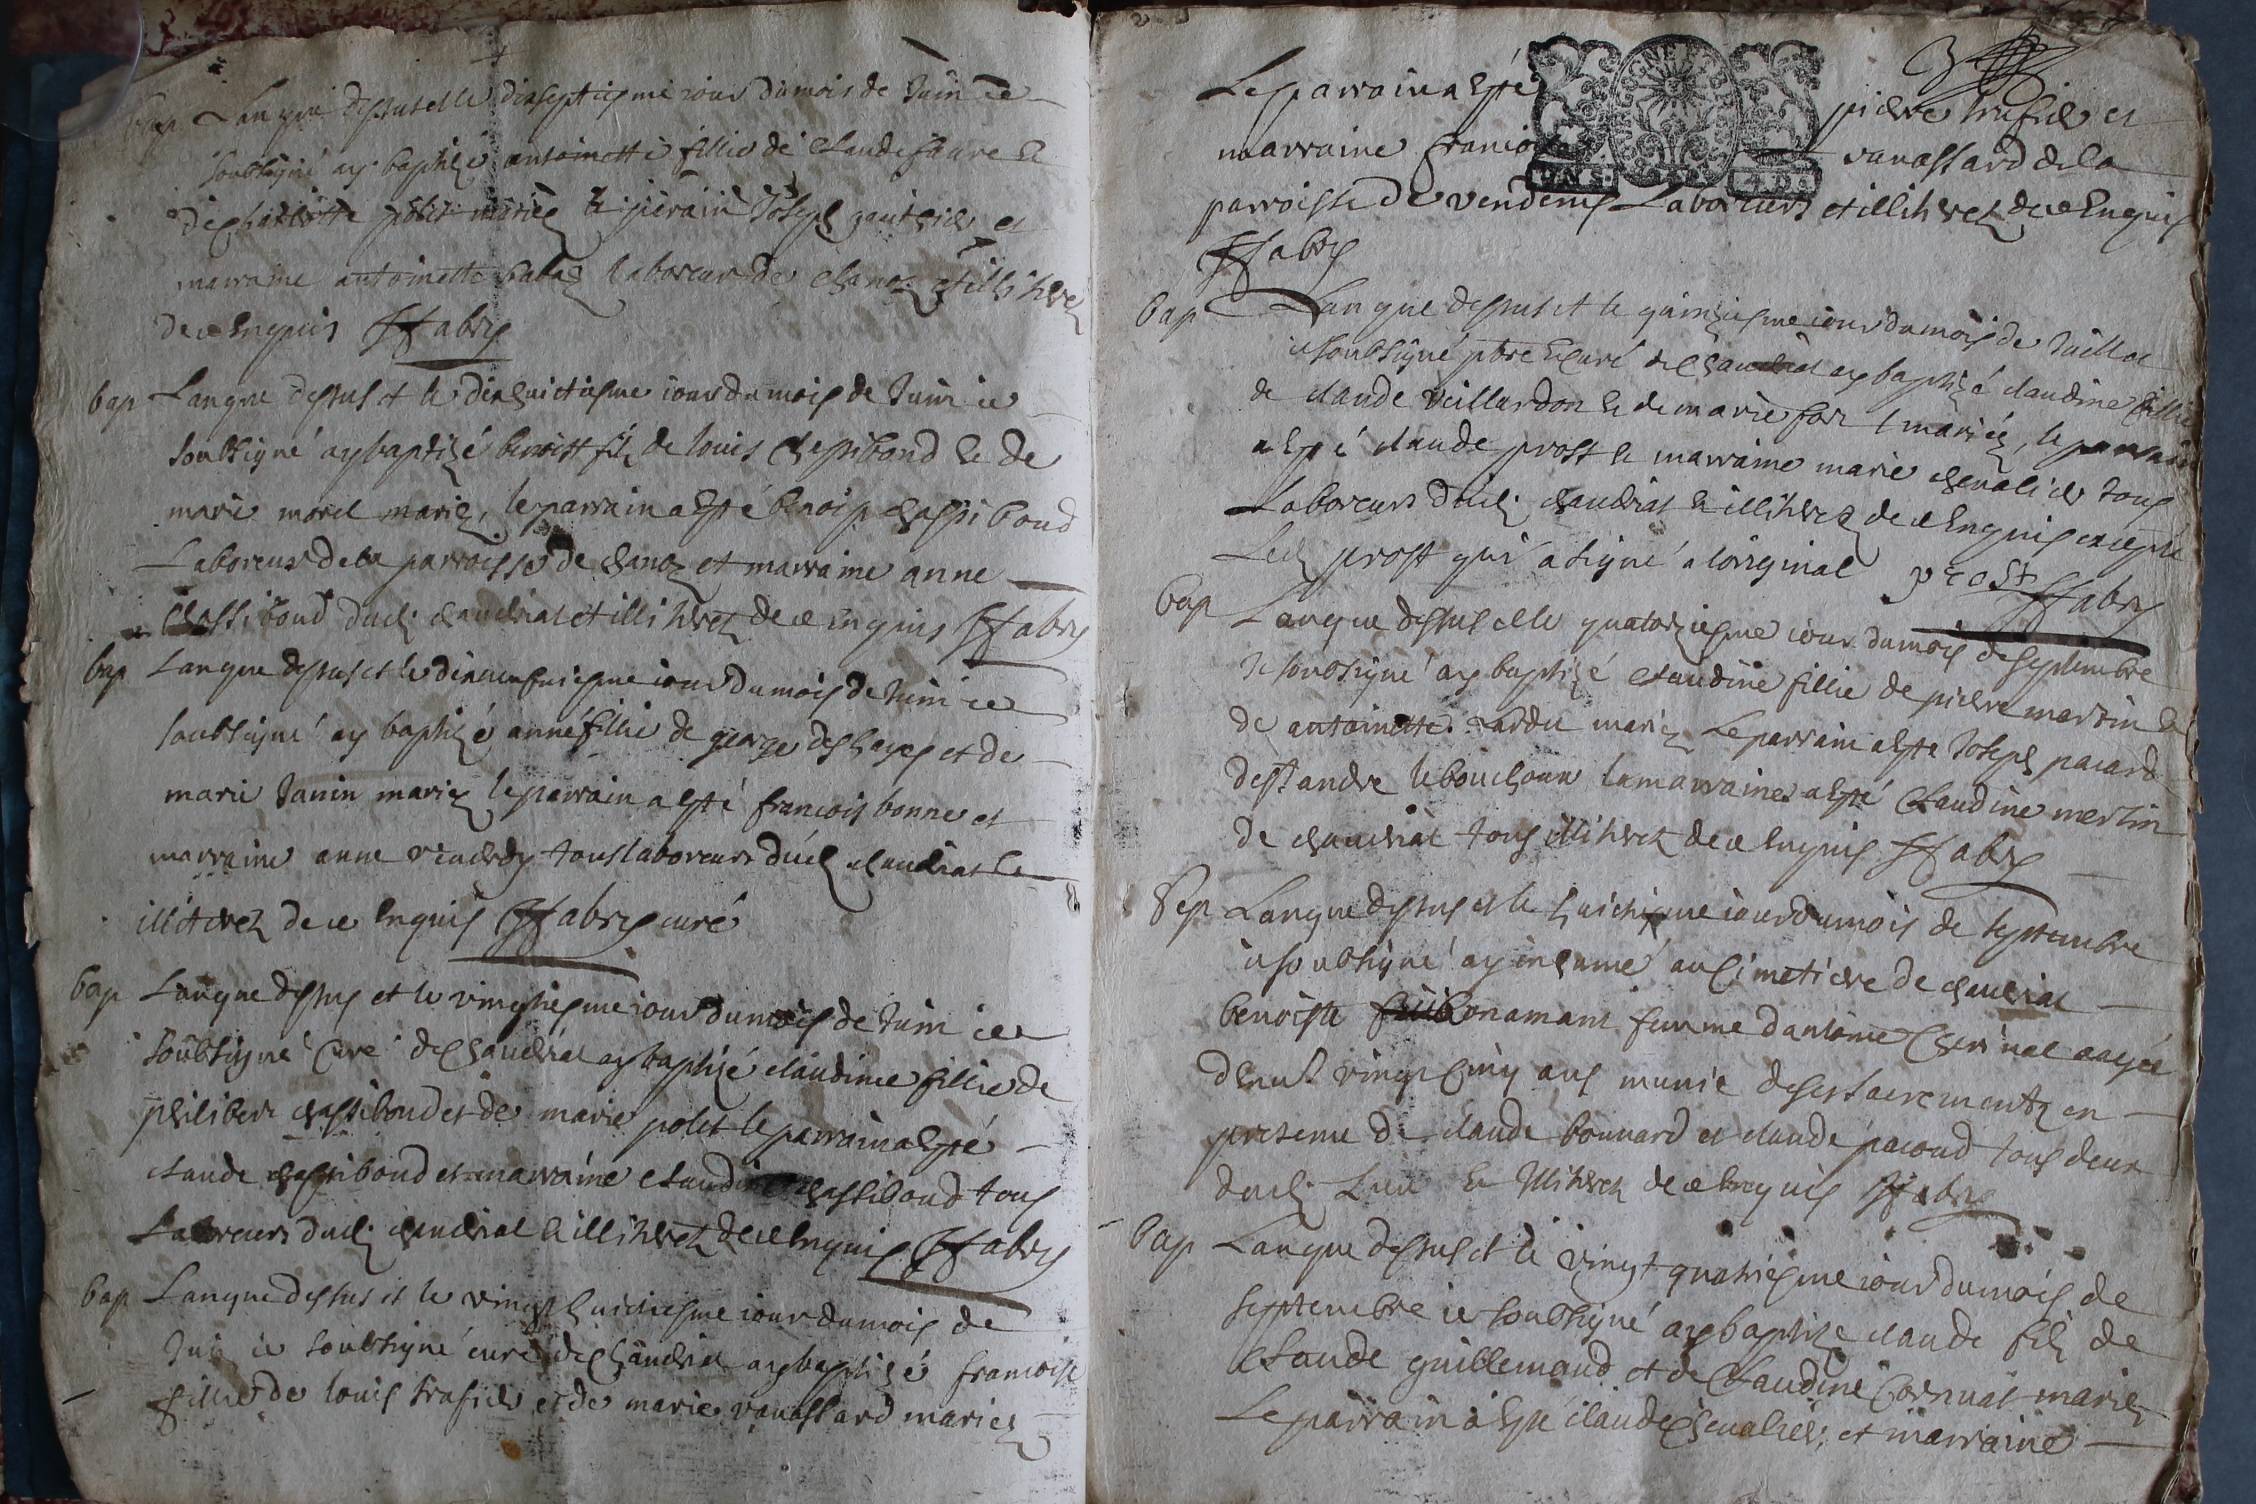 bap Lan que dessus et le dixseptiesme iour du mois de Juin ie
soubsigné ay baptizé antoinette fillie de Claude faure &
de charlotte polet mariez le pierain Joseph gauthier et
marraine antoinette laboreur de chanoz et illitirez
de ce enquis FFabry
bap Lan que dessus et le dixhuictiesme iour du mois de Juin ie
soubsigné ay baptizé benoist filz de louis chassiboud & de
marie morel mariez, le parrain a esté benoist chassiboud
Laboreur de la parroisse de chanoz et marraine anne
chassiboud dudi chaudriat et illitirez de ce enquis FFabry
bap Lan que dessus et le dixneufuiesme iour du mois de Juin ie
soubsigné ay baptizé anne fillie de george deshayes et de
marie Janin mariez le parrain a esté francois bonnet et
marraine anne tous laboreurs dudi chaudriat &
illitirez de ce enquis FFabry curé
bap Lan que dessus et le vingtiesme iour du mois de Juin ie
soubsigné curé de chaudriat ay baptizé claudine fillie de
philibert chassiboud et de marie polet le parrain a esté
claude chassiboud et marraine claudine chassiboud tous
Laboreurs dudi chaudriat & illitirez de ce enquis FFabry
bap Lan que dessus et le vingt huictiesme iour du mois de
Juin ie soubsigné curé de chaudriat ay baptizé francoise
fillie de louis trafier et de marie vanassard mariez
Le parrain a esté pierre trafier et
marraine francoise vanassard de la
parroisse de vendeins Laboreurs et illitirez de ce enquis
FFabry
bap Lan que dessus et le quinziesme iour du mois de Juillet
ie soubsigné pbre & curé de chaudriat ay baptizé claudine fillie
de claude veillardon & de marie for mariez, le parrain
a esté claude prost & marraine marie chevalier tous
Laboreurs dudi chaudriat & illitirez de ce enquis excepté
Ledi prost qui a signé a loriginal prost FFabry
bap Lan que dessus et le quatorziesme iour du mois de septembre
Je soubsigné ay baptizé claudine fillie de pierre martin &
de antoinette Lardu mariez Le parrain a esté Joseph pacard
de st andre le bouchoux la marraine a esté Claudine merlin
de chaudriat tous illitirez de ce enquis FFabry
Sep Lan que dessus et le huictiesme iour du mois de septembre
ie soubsigné ay inhumé au cimetiere de chaudriat
benoiste bonamant femme dantoine Chrinal aagée
denv. vingt cinq ans munie de ses sacrementz en
presence de claude bonnard et claude pacoud tous deux
dudi Lieu & illitirez de ce enquis FFabry
bap Lan que dessus et le vingt quatriesme iour du mois de
septembre ie soubsigné ay baptizé claude filz de
Claude guillemaud et de Claudine Cornuat mariez
Le parrain a esté claude chevalier, et marraine